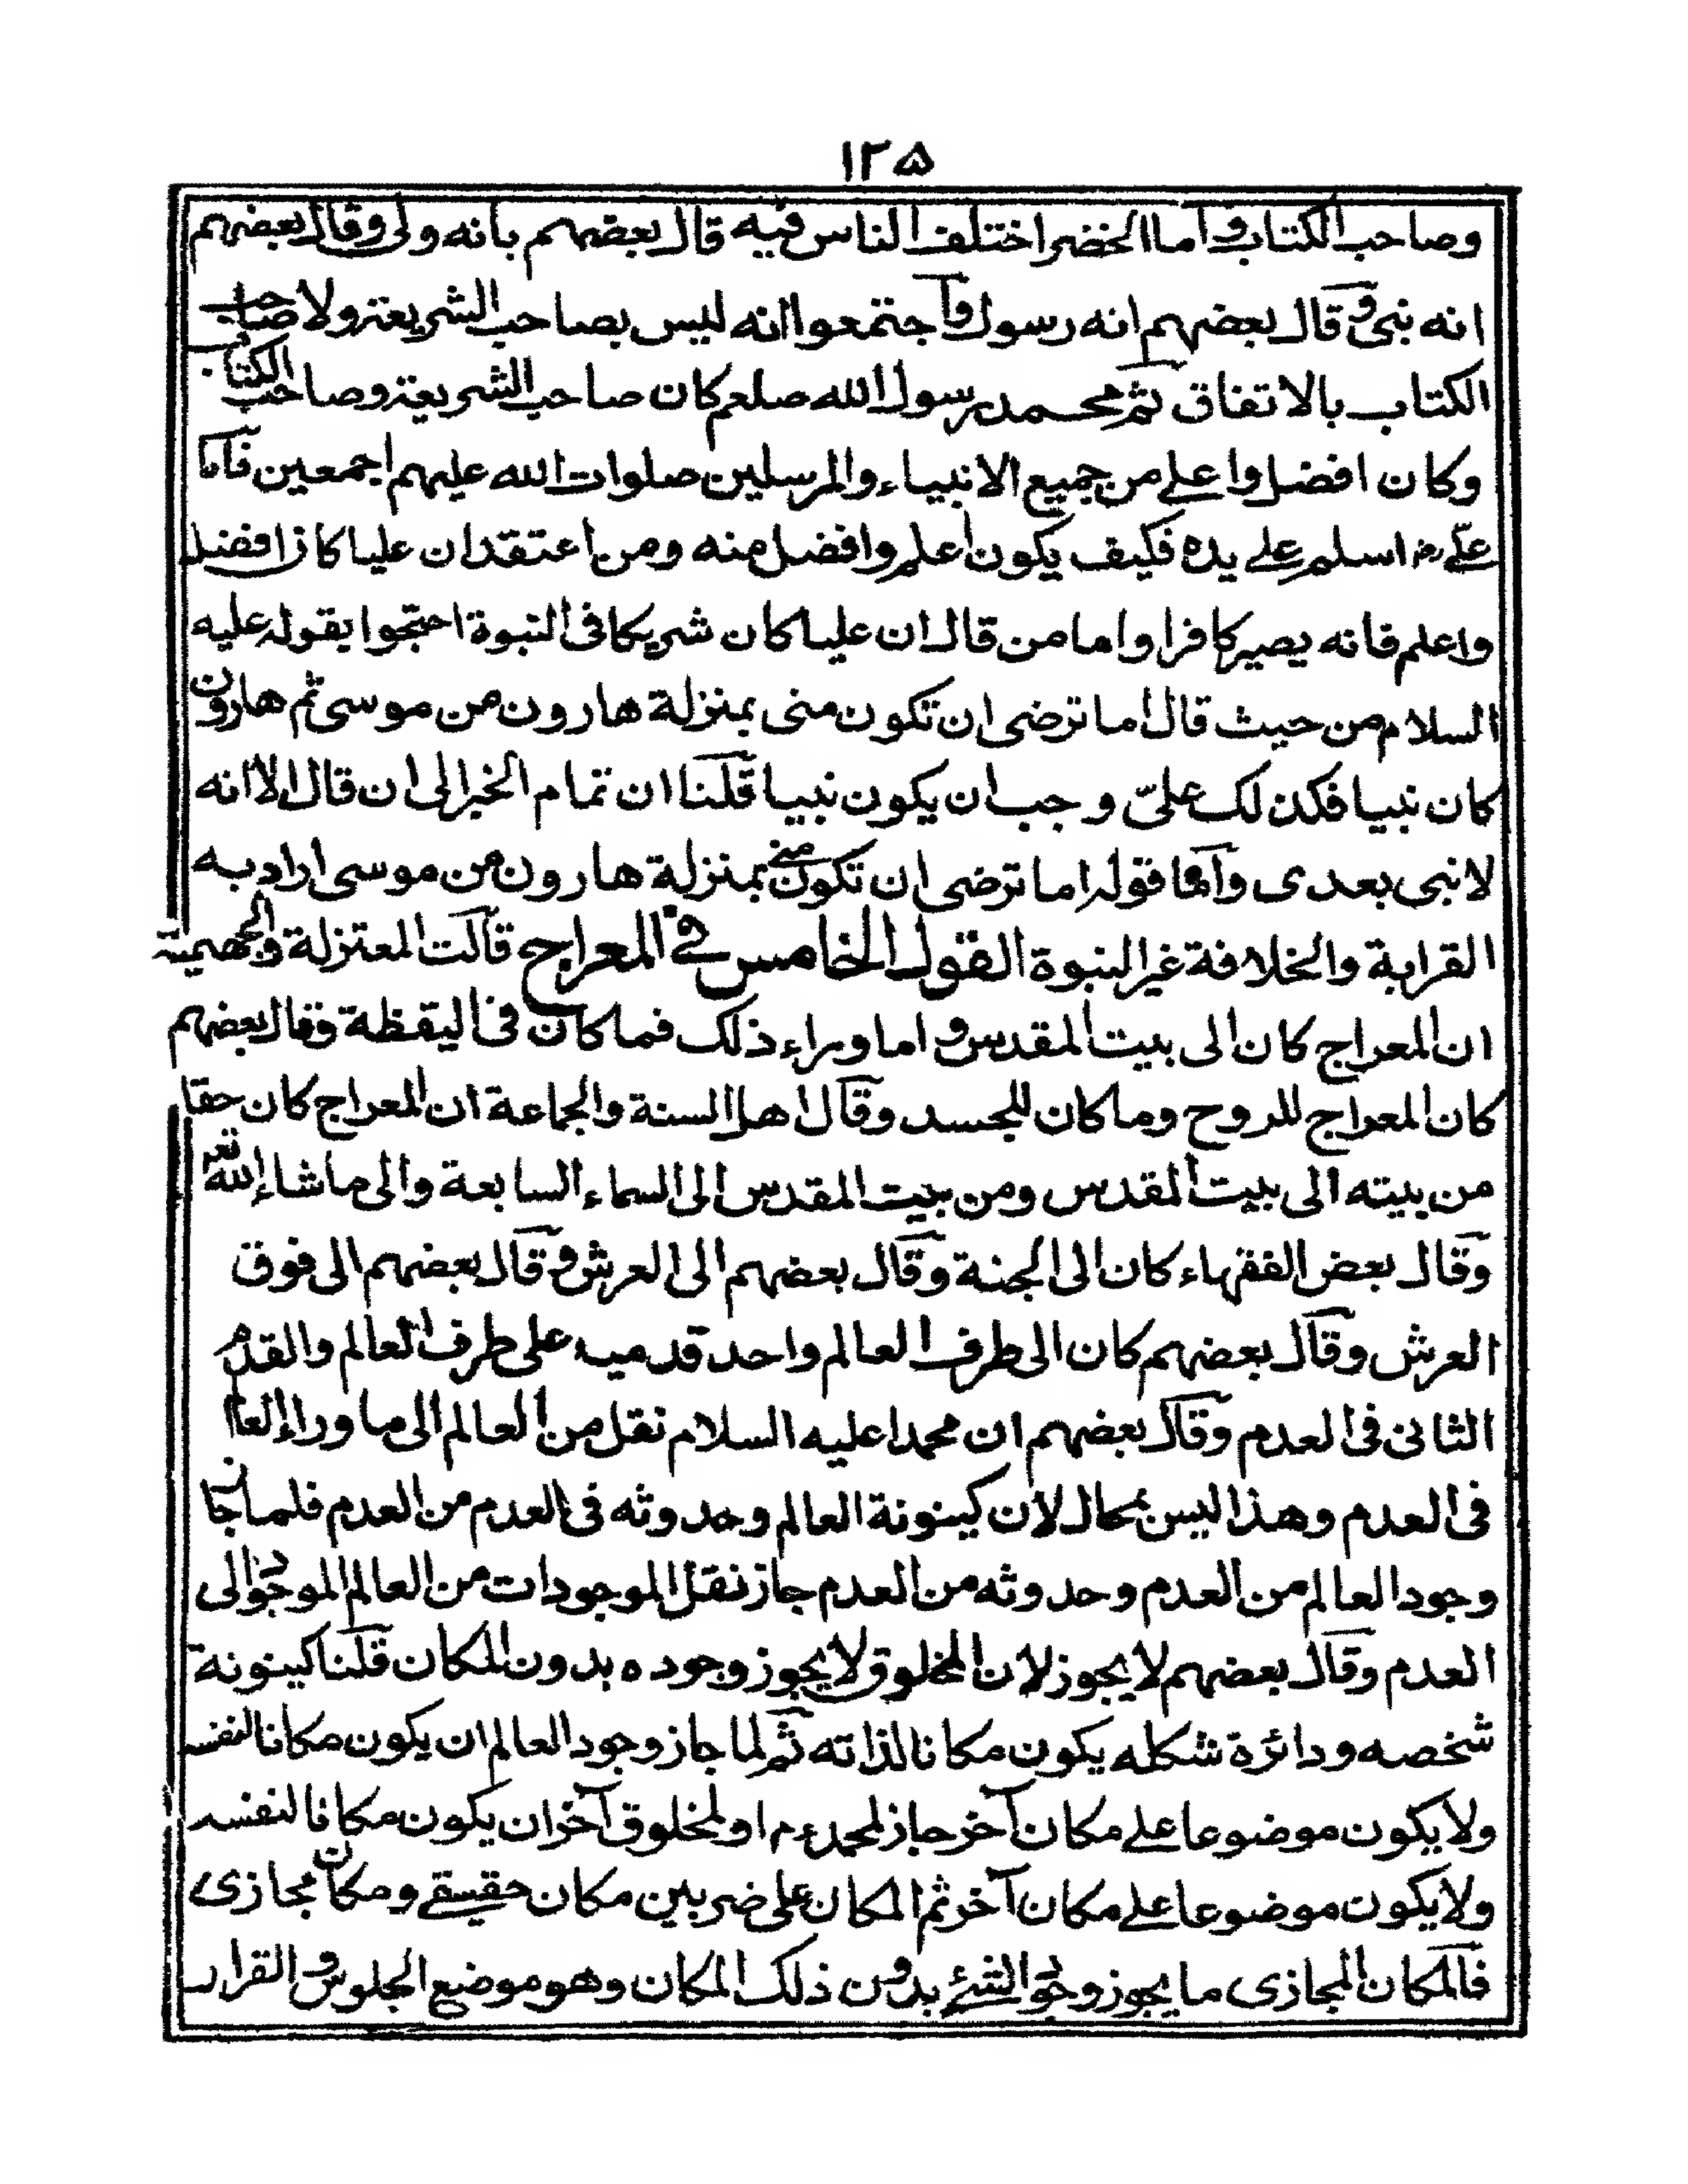 ١٢٥
وصاحب الكتاب واما الخضر اختلف الناس فيه قال بعضهم بانه ولى وقال بعضهم
انه نبى وقال بعضهم انه رسول واجتمعوا انه ليس بصاحب الشريعة ولا صاحب
الكتاب بالاتفاق ثم محمد رسول الله صلعم كان صاحب الشريعة وصاحب الكتاب
وكان افضل واعلے من جميع الانبياء والمرسلين صلوات الله عليهم اجمعين فاما
علےؓ اسلم علے يده فكيف يكون اعلم وافضل منه ومن اعتقد ان عليا كان افضل
واعلم فانه يصير كافرا واما من قال ان عليا كان شريكا فى النبوة احتجوا بقوله عليه
السلام من حيث قال اما ترضى ان تكون منى بمنزلة هارون من موسى ثم هارون
كان نبيا فكذلك علىّ وجب ان يكون نبيا قلنا ان تمام الخبر الى ان قال الا انه
لا نبى بعدى واما قوله اما ترضى ان تكون منے بمنزلة هارون من موسى اراد به
القرابة والخلافة غير النبوة القول الخامس فے المعراج قالت المعتزلة والجهمية
ان المعراج كان الى بيت المقدس واما وراء ذلك فما كان فى اليقظة وقال بعضهم
كان المعراج للروح وما كان للجسد وقال اهل السنة والجماعة ان المعراج كان حقا
من بيته الى بيت المقدس ومن بيت المقدس الى السماء السابعة والى ما شاء الله تعہ
وقال بعض الفقهاء كان الى الجنة وقال بعضهم الى العرش وقال بعضهم الى فوق
العرش وقال بعضهم كان الى طرف العالم واحد قدميه على طرف العالم والقدم
الثانى فى العدم وقال بعضهم ان محمدا عليه السلام نقل من العالم الى ما وراء العالم
فى العدم وهذا ليس بمحال لان كينونة العالم وحدوثه فى العدم من العدم فلما جاز
وجود العالم من العدم وحدوثه من العدم جاز نقل الموجودات من العالم الموجود الى
العدم وقال بعضهم لا يجوز لان المخلوق لا يجوز وجوده بدون المكان قلنا كينونة
شخصه ودائرة شكله يكون مكانا لذاته ثم لما جاز وجود العالم ان يكون مكانا لنفسه
ولا يكون موضوعا علے مكان آخر جاز لمحمدءم او لمخلوق آخر ان يكون مكانا لنفسه
ولا يكون موضوعا علے مكان آخر ثم المكان على ضربين مكان حقيقے ومكان مجازى
فالمكان المجازى ما يجوز وجود الشئ بدون ذلك المكان وهو موضع الجلوس والقرار